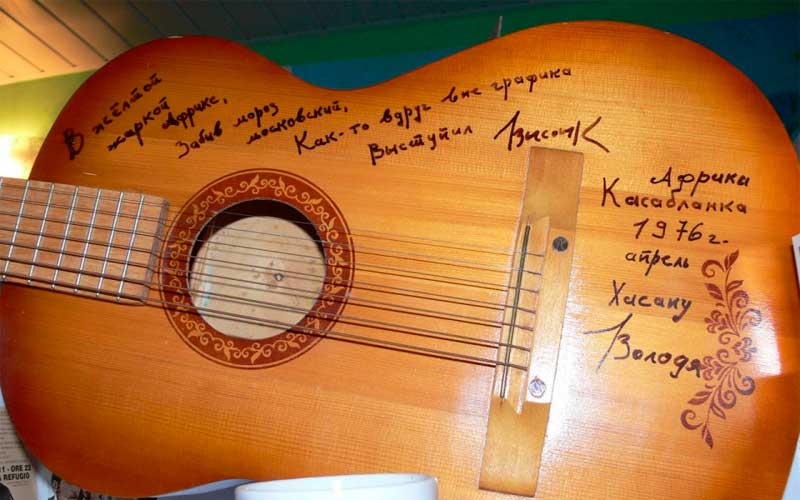 В жёлтой
жаркой Африке,
Забив мороз
московский,
Как-то вдруг вне графика
Выступил Высоцк
Африка
Касабланка
1976 г.
апрель
Хасану
Володя
1 - ORE 22
REFUGIO